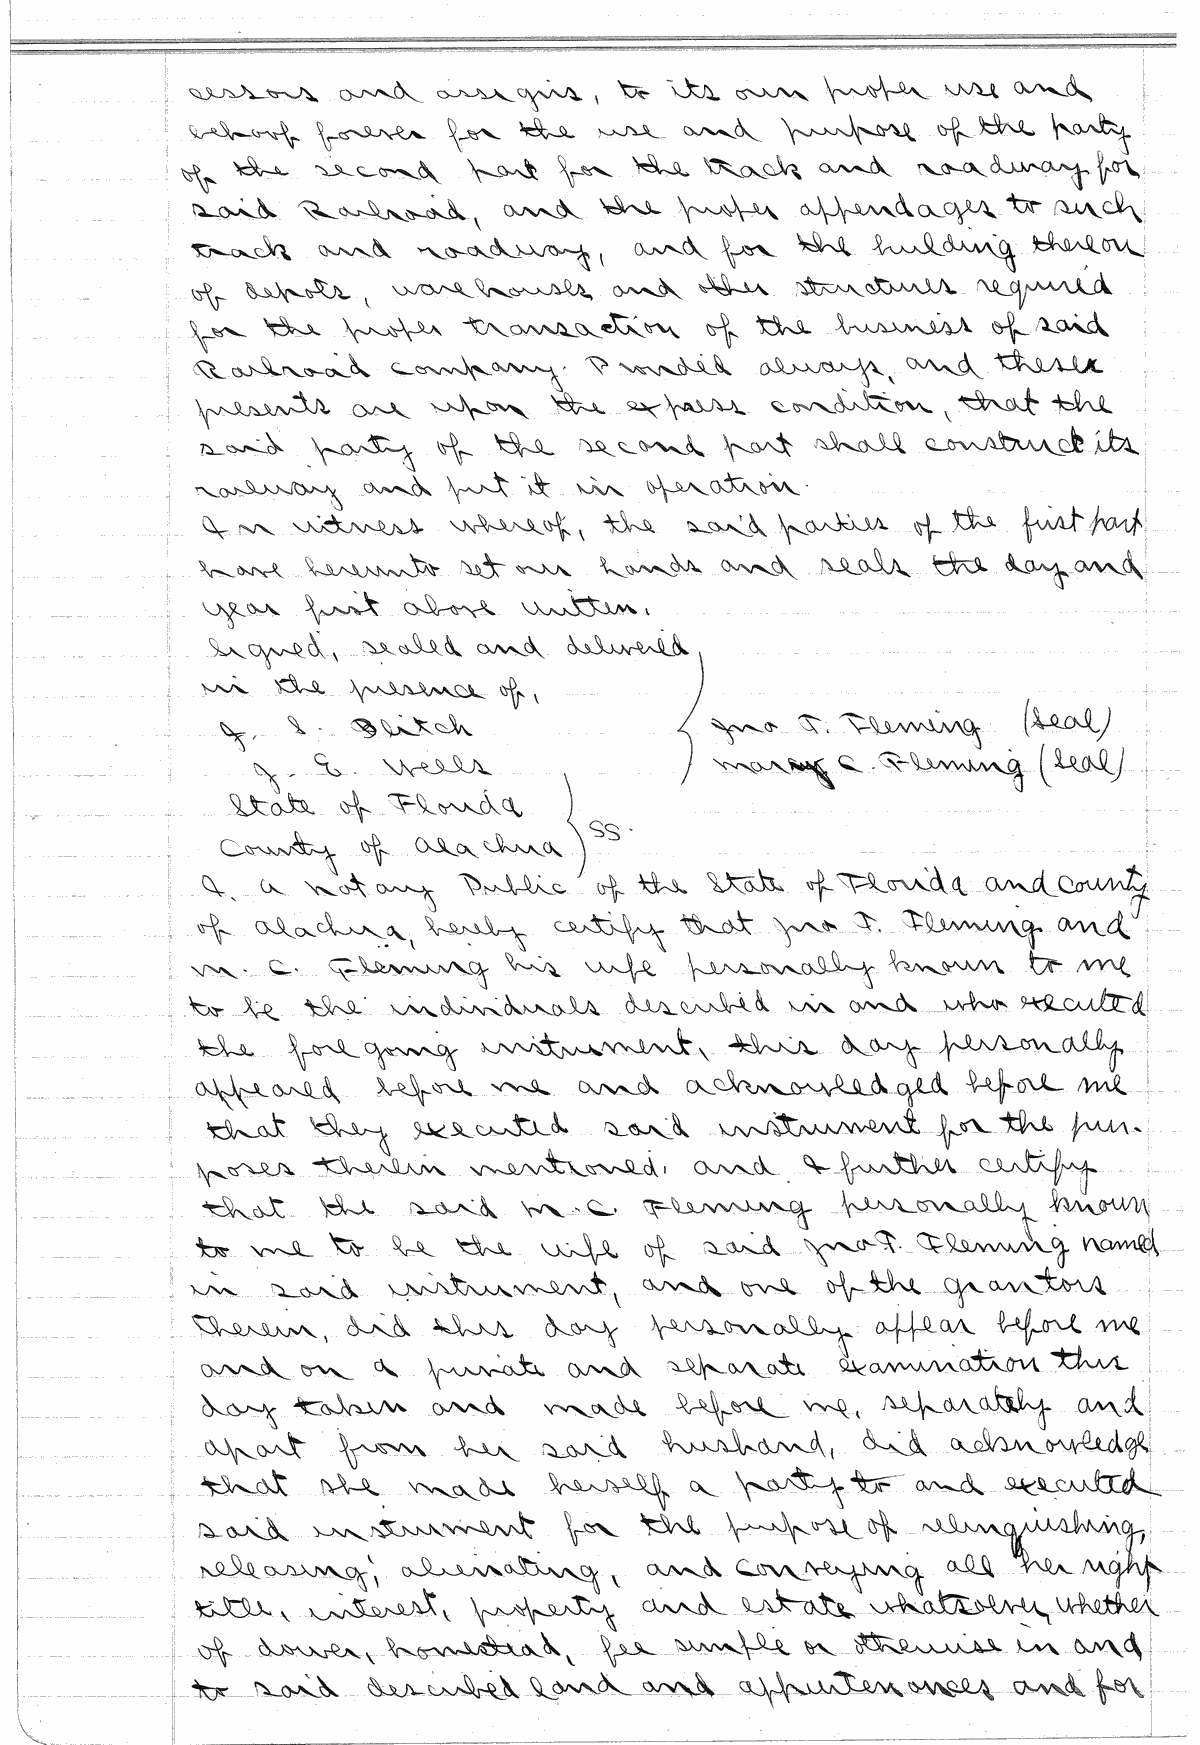 cessors and assigns, to its own proper use and
behoof forever for the use and purpose of the party
of the second part for the track and roadway for
said Railroad, and the proper appendages to such
track and roadway, and for the building thereon
of depots, warehouses and other structures required
for the proper transaction of the business of said
Railroad Company. Provided always, and these
presents are upon the express condition, that the
said party of the second part shall construct its
railway and put it in operation.
In witness whereof, the said parties of the first part
have hereunto set our hands and seals the day and
year first above written.
Signed, sealed and delivered
in the presence of,
J. S. Blitch
Jno T. Fleming (Seal)
J. E. Wells
Mary C. Fleming (Seal)
State of Florida
SS.
County of Alachua
I, a Notary Public of the State of Florida and County
of Alachua, hereby certify that Jno T. Fleming and
M. C. Fleming his wife personally known to me
to be the individuals described in and who executed
the foregoing instrument, this day personally
appeared before me and acknowledged before me
that they executed said instrument for the pur-
poses therein mentioned, and I further certify
that the said M. C. Fleming personally known
to me to be the wife of said Jno T. Fleming named
in said instrument, and one of the grantors
therein, did this day personally appear before me
and on a private and separate examination this
day taken and made before me, separately and
apart from her said husband, did acknowledge
that she made herself a party to and executed
said instrument for the purpose of relinquishing,
releasing, alienating, and conveying all her right
title, interest, property and estate whatsoever, whether
of dower, homestead, fee simple or otherwise in and
to said described land and appurtenances and for